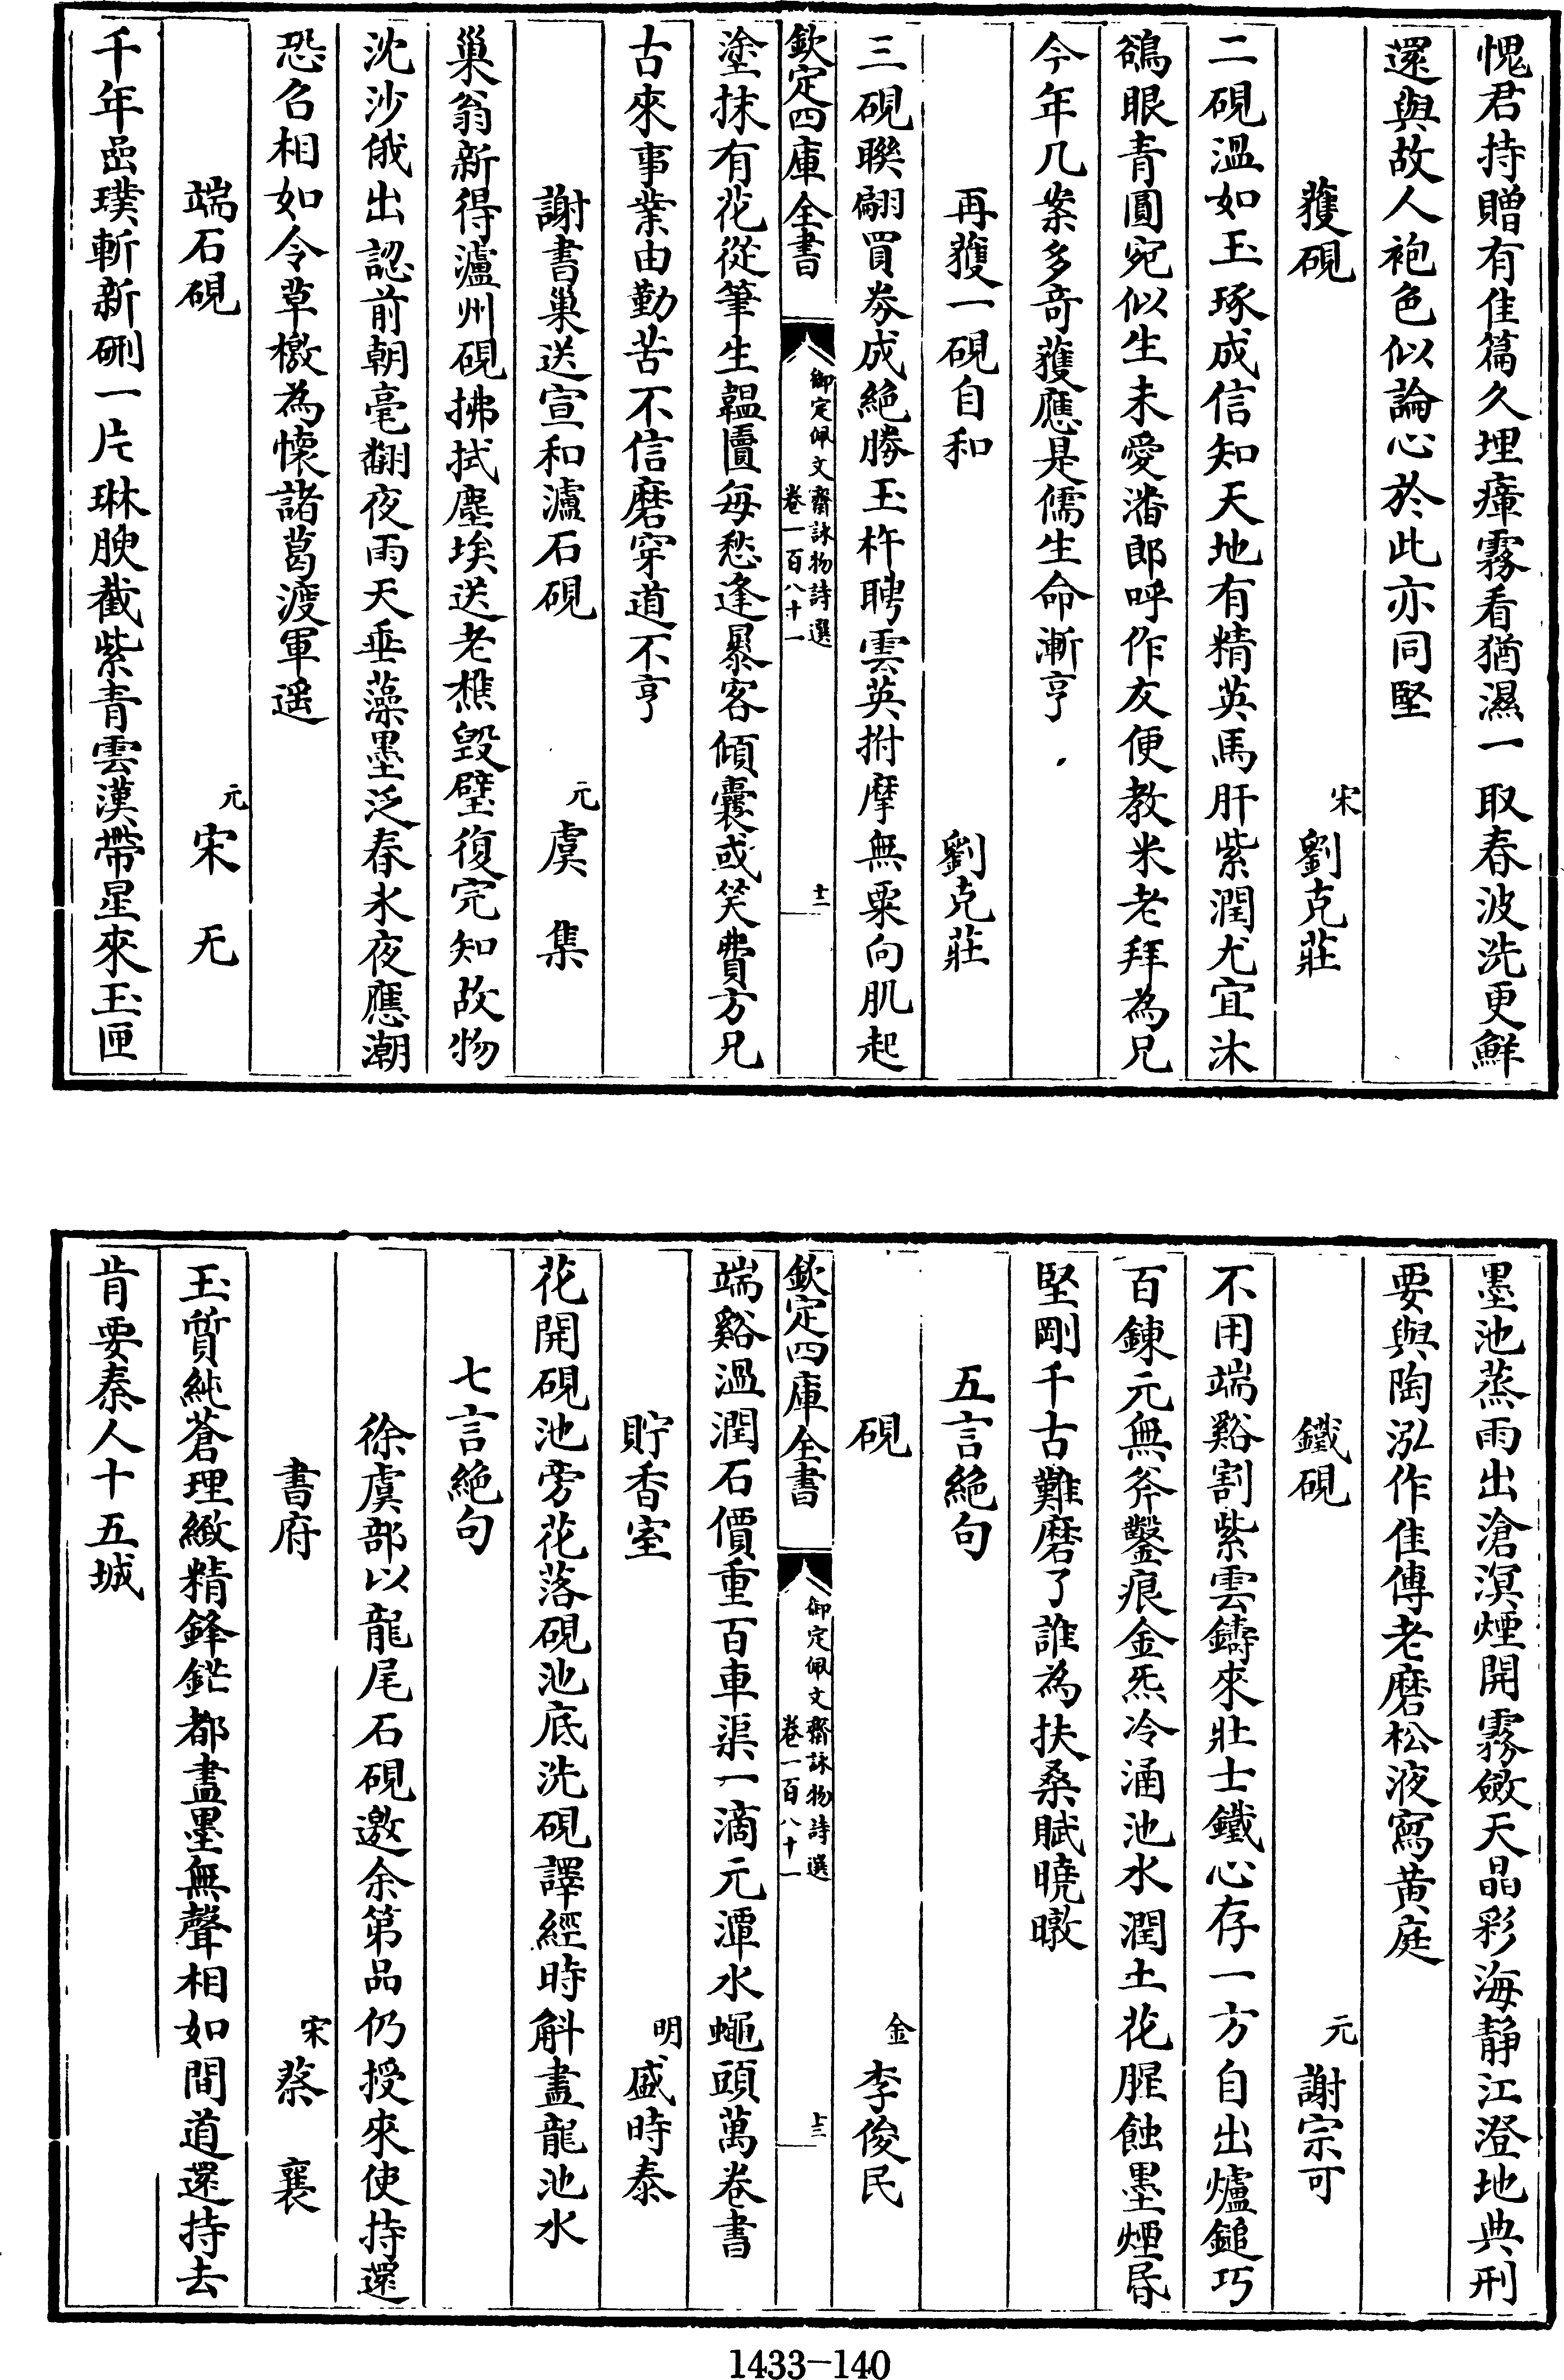 愧君持贈有佳篇久埋瘴霧看猶濕一取春波洗更鮮
還與故人袍色似論心於此亦同堅
獲硯 宋 劉克莊
二硯溫如玉琢成信知天地有精英馬肝紫潤尤宜沐
鵒眼青圓宛似生未愛潘郎呼作友便教米老拜為兄
今年几案多奇獲應是儒生命漸亨
再獲一硯自和 劉克莊
三硯聯翩買券成絶勝玉杵聘雲英拊摩無粟向肌起
欽定四庫全書 御定佩文齋詠物詩選 卷一百八十一 十二
塗抹有花從筆生韞匵每愁逢暴客傾囊或笑費方兄
古來事業由勤苦不信磨穿道不亨
謝書巢送宣和瀘石硯 元 虞集
巢翁新得瀘州硯拂拭塵埃送老樵毀璧復完知故物
沈沙俄出認前朝毫翻夜雨天垂藻墨泛春氷夜應潮
恐召相如令草檄為懷諸葛渡軍遥
端石硯 元 宋无
千年嵒璞斬新硎一片琳腴截紫青雲漢帶星來玉匣
墨池蒸雨出滄溟煙開霧斂天晶彩海靜江澄地典刑
要與陶泓作佳傳老磨松液寫黃庭
鐵硯 元 謝宗可
不用端谿割紫雲鑄來壯士鐵心存一方自出爐鎚巧
百鍊元無斧鑿痕金炁冷涵池水潤土花腥蝕墨煙昏
堅剛千古難磨了誰為扶桑賦曉暾
五言絶句
硯 金 李俊民
欽定四庫全書 御定佩文齋詠物詩選 卷一百八十一 十三
端谿溫潤石價重百車渠一滴元潭水蠅頭萬卷書
貯香室 明 盛時泰
花開硯池旁花落硯池底洗硯譯經時斛盡龍池水
七言絶句
徐虞部以龍尾石硯邀余第品仍授來使持還
書府 宋 蔡襄
玉質純蒼理緻精鋒鋩都盡墨無聲相如間道還持去
肯要秦人十五城
1433-140